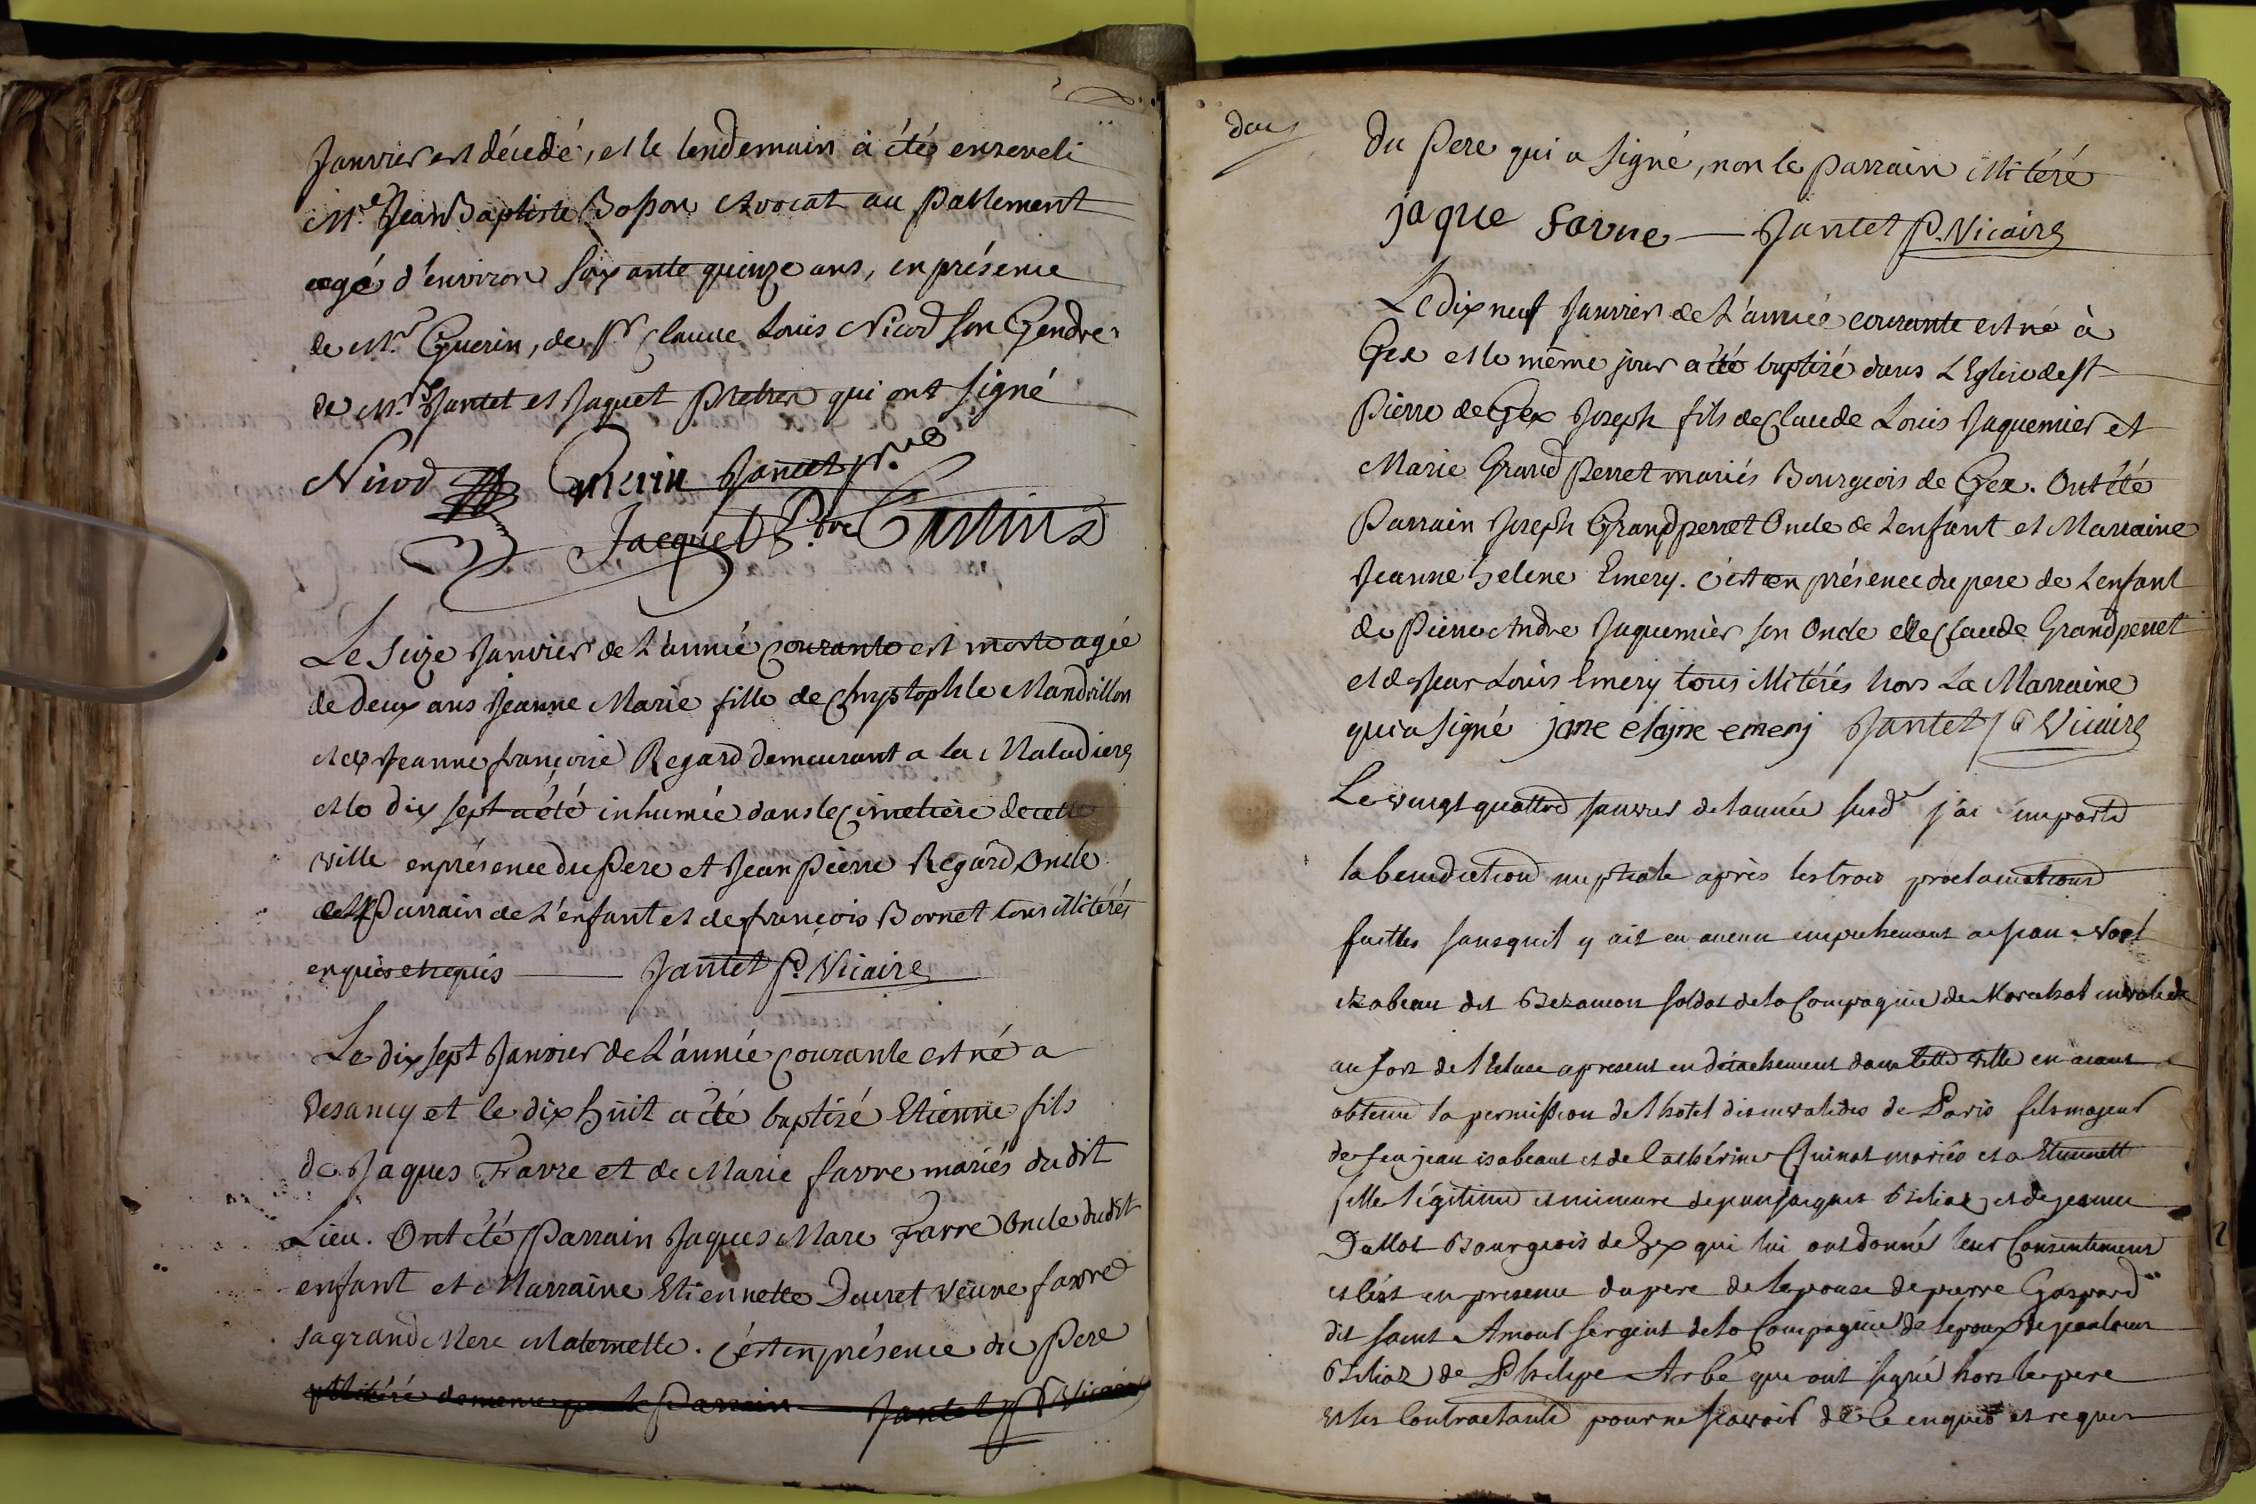 Janvier est décédé, et le lendemain a été enseveli
Mre Jean Baptiste Bosson Avocat au Parlement
agé d'environ soixante quinze ans, en présence
de Mr Guerin, de Sr Claude Louis Nicod son Gendre
de Mrs Jantet et Jaquet Pretres qui ont signé
Nicod Guerin Jantet ptre
Jacquet Ptre
Le seize Janvier de L'année courante est morte agée
de deux ans Jeanne Marie fille de Chrystophle Mandrillon
et de Jeanne françoise Regard demeurant a la Maladiere
et le dix sept a été inhumée dans le Cimetiere de cette
ville en présence du Pere et Jean Pierre Regard Oncle
et Parrain de L'enfant et de françois Bornet tous illitérés
enquis et requis Jantet P. Vicaire
Le dix sept Janvier de L'année courante est né a
Vesancy et le dix huit a été baptisé Etienne fils
de Jaques Favre et de Marie favre mariés du dit
Lieu. Ont été Parrain Jaques Marc Favre Oncle du dit
enfant et Marraine Etiennette Ducret veuve favre
sa grand Mere Maternelle. C'est en présence du Pere
illitéré de meme que le Parrain Jantet P. Vicaire
du Pere qui a signé, non le parrain illitéré
jaque favre Jantet P. Vicaire
Le dix neuf Janvier de L'année courante est né à
Gex et le même jour a été baptisé dans L'Eglise de St
Pierre de Gex Joseph fils de Claude Louis Jaquemier et
Marie Grand Perret mariés Bourgeois de Gex. Ont été
Parrain Joseph Grandperret Oncle de L'enfant et Marraine
Jeanne helene Emery. C'est en présence du pere de L'enfant
de Pierre Andre Jaquemier son Oncle de Claude Grandperret
et de Jean Louis Emery tous illitérés hors La Marraine
qui a signé jane élajne emerj Jantet P. Vicaire
Le vingt quattre janvier de l'année susd. j'ai imparti
la benediction nuptiale après les trois proclamations
faittes sans quil y ait eu aucun empechement a jean Noel
izabeau dit Bezancon soldat de la Compagnie de invalide
au fort de l'Ecluse a present en détachement dans cette ville en aiant
obtenu la permission de l'hotel des invalides de Paris fils majeur
de feu jean isabeaut et de Cathérine mariés et a Etiennett
fille légitime et mineure de jean jacques et de jeanne
Bourgeois de Gex qui lui ont donné leur Consentement
et c'est en presence du pere de l'epouse de pierre Gaspard
dit saint Amour sergent de la Compagnie de l'epoux de jean louis
de Philipe Arbé qui ont signé hors le pere
et les Contractants pour ne scavoir de ce enquis et requis